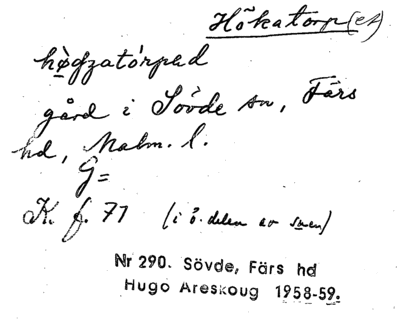 Hökatorp(et)
hø̀gzatórped
gård i Sövde sn, Färs
hd, Malm. l.
G=
K. f. 71 (i ö. delen av snen)
Nr 290. Sövde, Färs hd
Hugo Areskoug 1958-59.